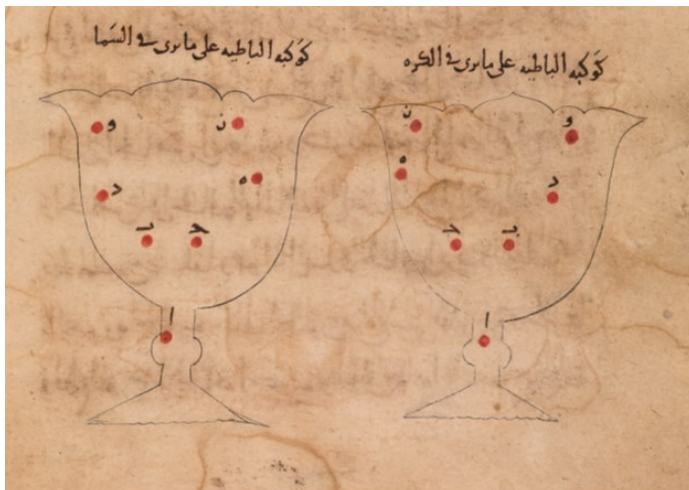 كوكبه الباطيه على ما يرى في الكره
و ز
ه
د
ب ج
ا
كوكبه الباطيه على ما يرى في السما
ز و
ه د
ج ب
ا